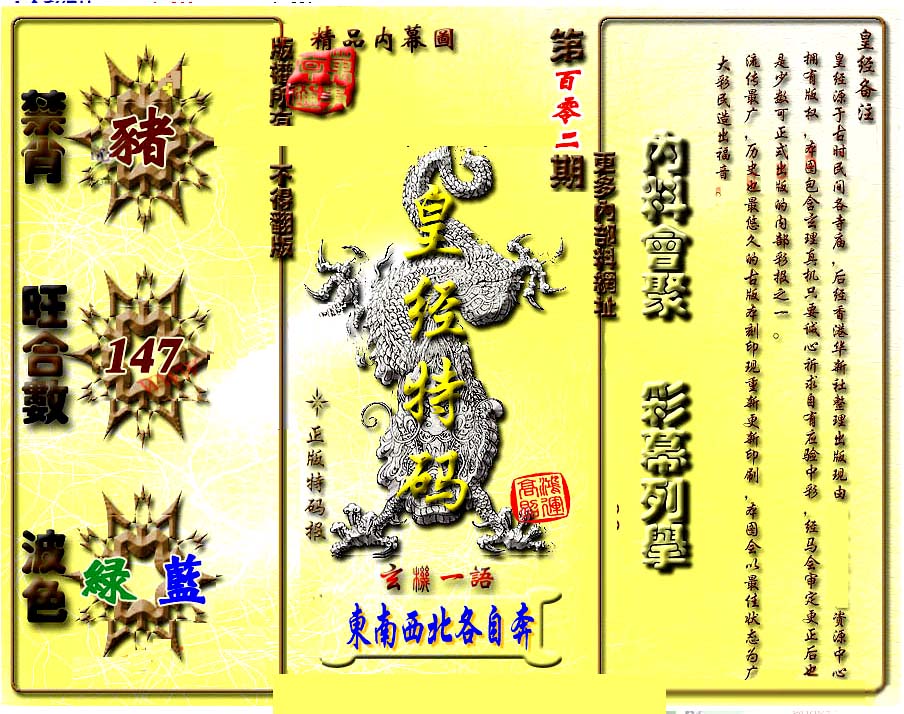 皇经备注
皇经源于古时民间各寺庙，后经香港华新社整理出版现由 资源中心
拥有版权，本图包含玄理真机只要诚心祈求自有应验中彩，经马会审定更正后也
是少数可正式出版的内部彩报之一。
流传最广，历史也最悠久的古版本刻印现重新更新印刷，本图会以最佳状态为广
大彩民造出福音
内料會聚
彩幕列舉
更多內部料網址
第百零二期
精品内幕圖
版權所有
不得翻版
皇经特码
正版特码报
鴻運
高照
玄機一語
東南西北各自奔
禁肖
豬
旺合數
147
波色
綠 藍